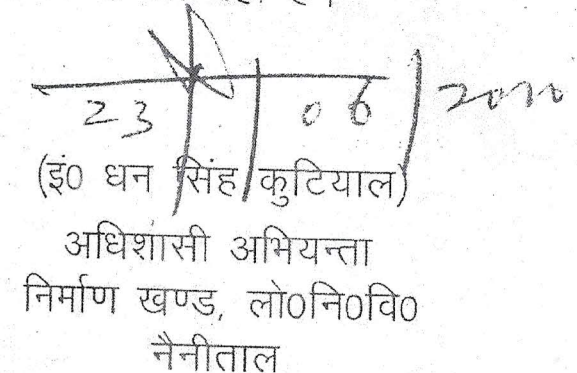 23/06/2020
(इं0 धन सिंह कुटियाल)
अधिशासी अभियन्ता
निर्माण खण्ड, लो0नि0वि0
नैनीताल